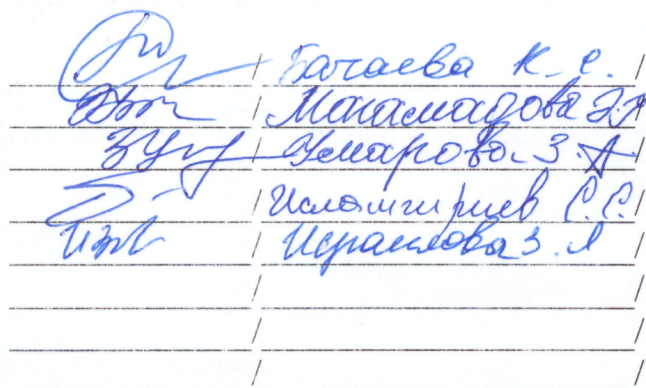 / Бачаева К. С. /
/ Магамадова Э. /
/ Умарова З. А /
/ Исламгириев С. С. /
/ Исраилова З. А /
/ /
/ /
/ /